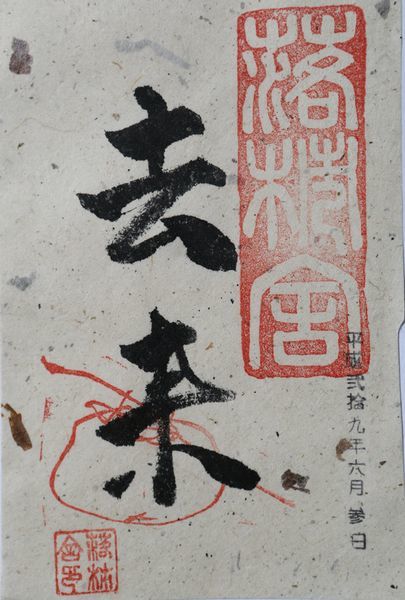 落柿舎
平成弐拾九年六月参日
去来
落柿
舎印